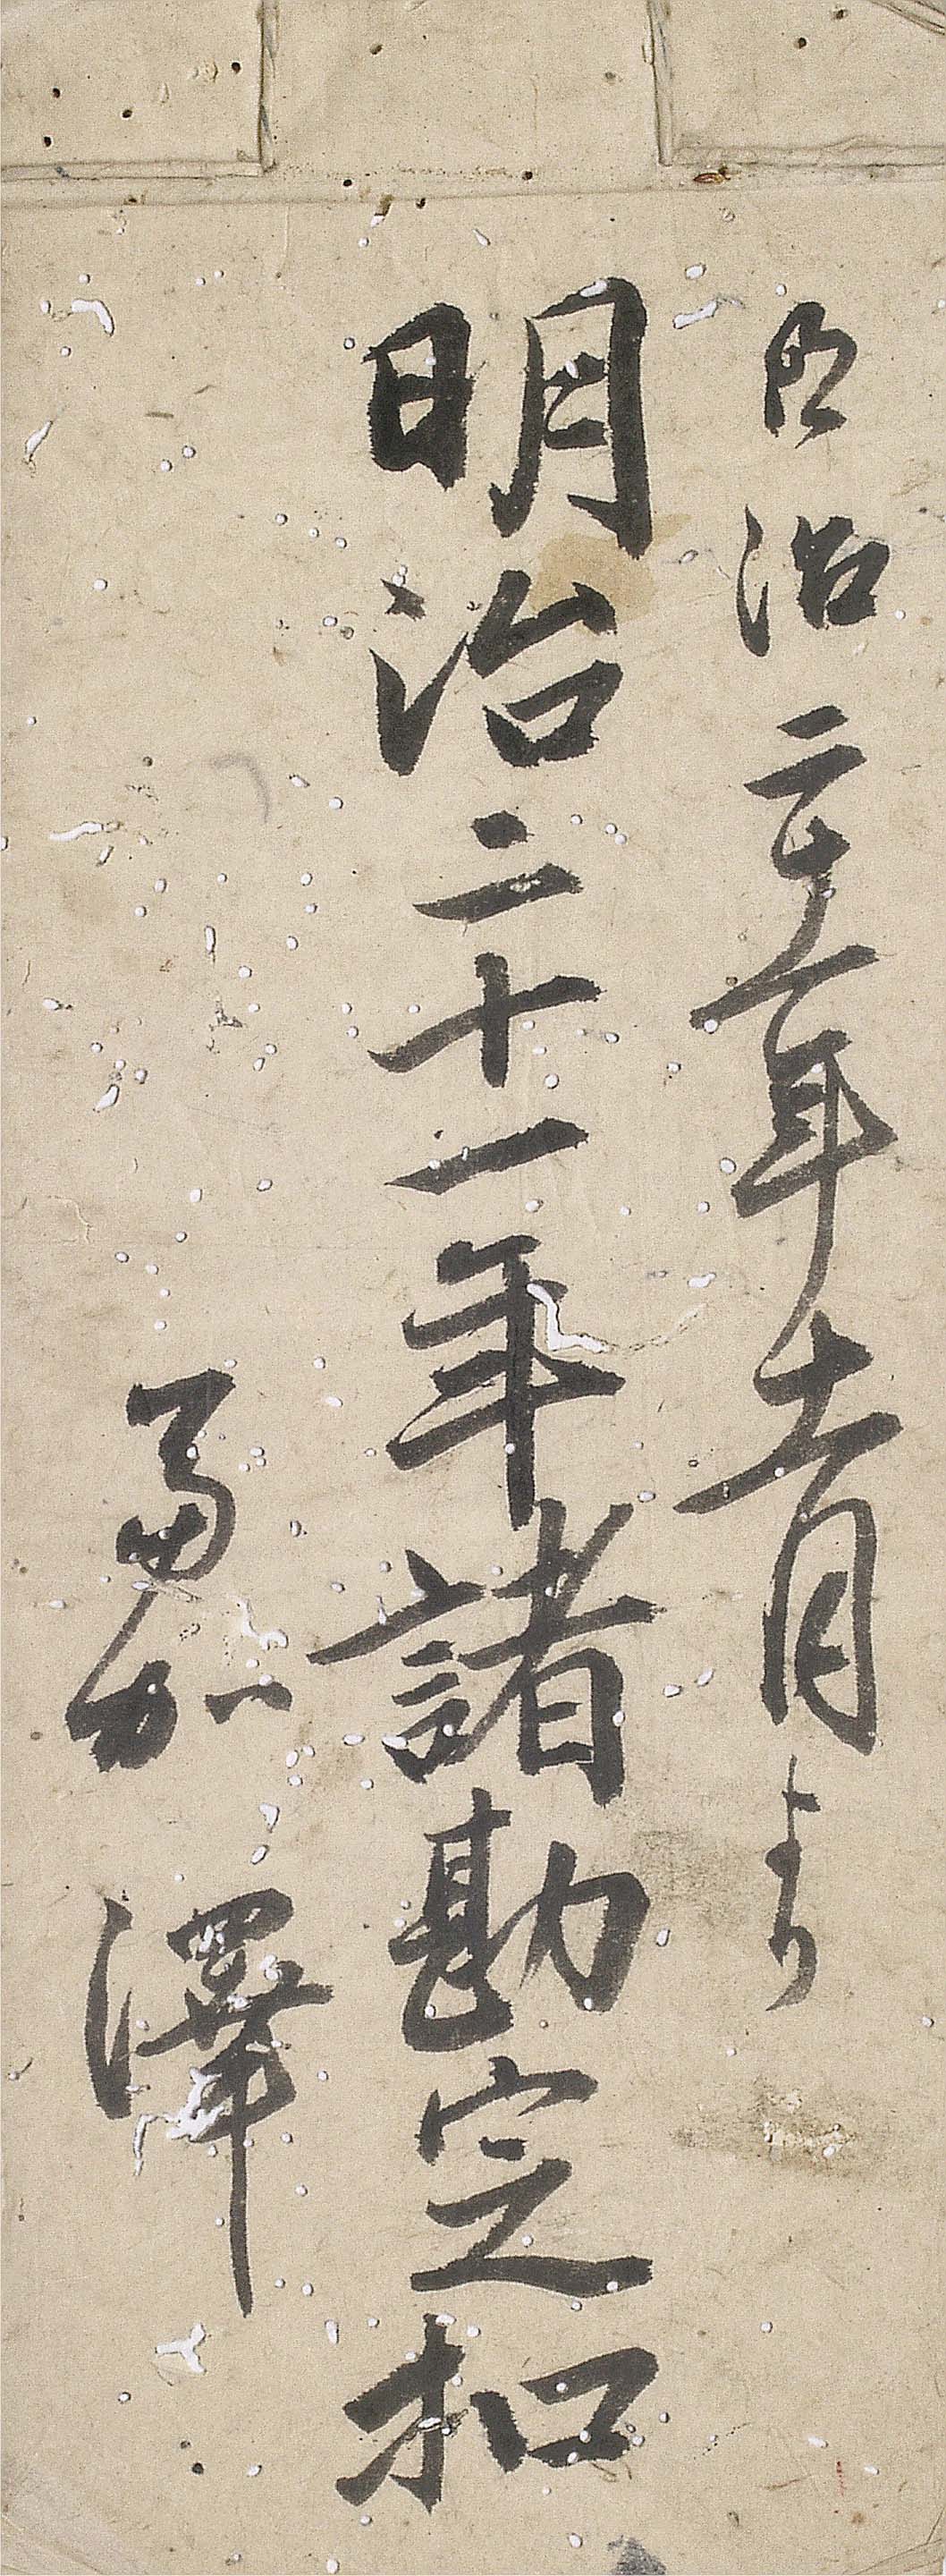 明治二十一年十一月より
明治二十一年諸勘定扣
澤